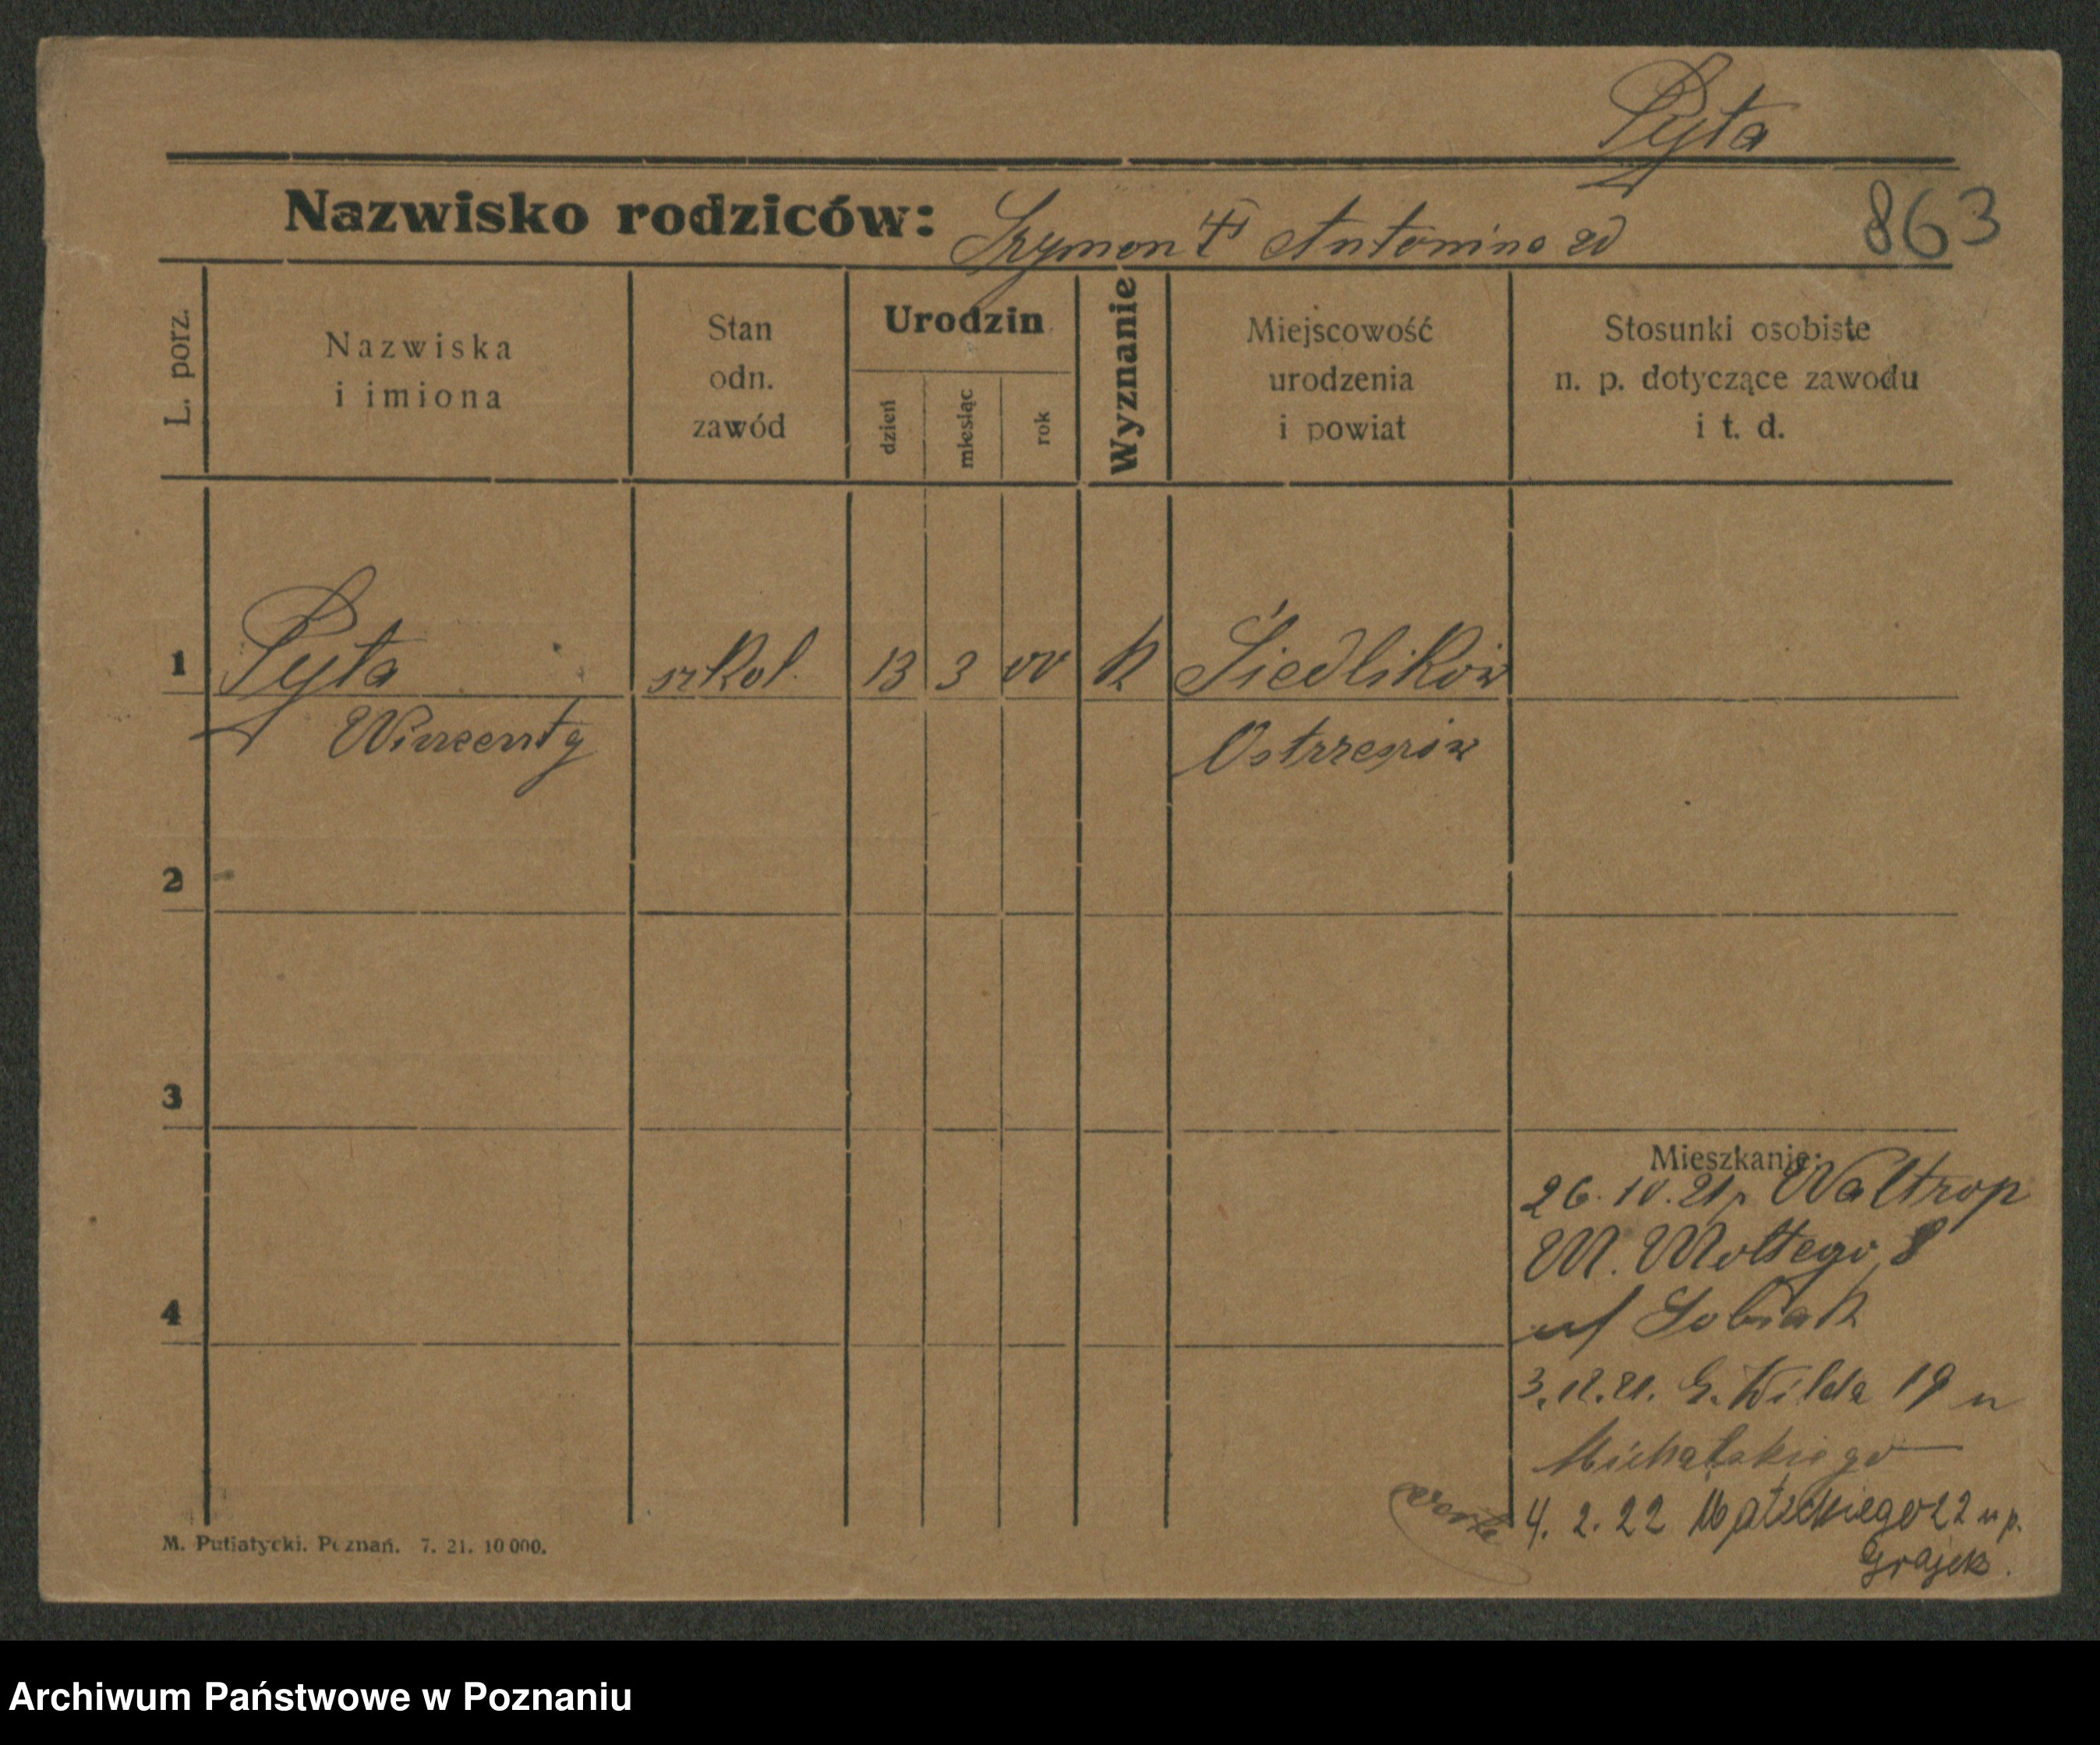 Pyta
Nazwisko rodziców: Szymon Antonina
863
L. porz.
Nazwiska
i imiona
Stan
odn.
zawód
Urodzin
dzień
miesiąc
rok
Wyznanie
Miejscowość
urodzenia
i powiat
Stosunki osobiste
n. p. dotyczące zawodu
i t. d.
1 Pyta szkol. 13 3 00 k Siedlików
Wincenty Ostrzeszów
2
3
Mieszkanie:
26. 10. 21 Waltrop
M. Moltego 8
Sobiak
4
3. 12. 21. G. Wilda 19 u
Michalskiego
4. 2. 22 22 u p.
Grajek.
M. Putiatycki. Poznań. 7. 21. 10 000.
Archiwum Państwowe w Poznaniu